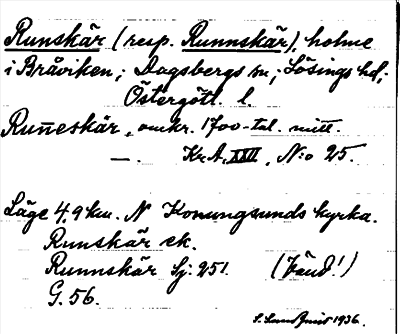 Runskär (resp. Runnskär), holme
i Bråviken; Dagsbergs sn; Lösings hd;
Östergötl. l.
Run̄eskär, omkr. 1700-tal. mitt.
—. Kr.A. XXII, N:o 25.
Läge 4,9 km. N Konungsunds kyrka.
Runskär ek.
Runnskär Sj: 251. (Vänd!)
G. 56.
1936.